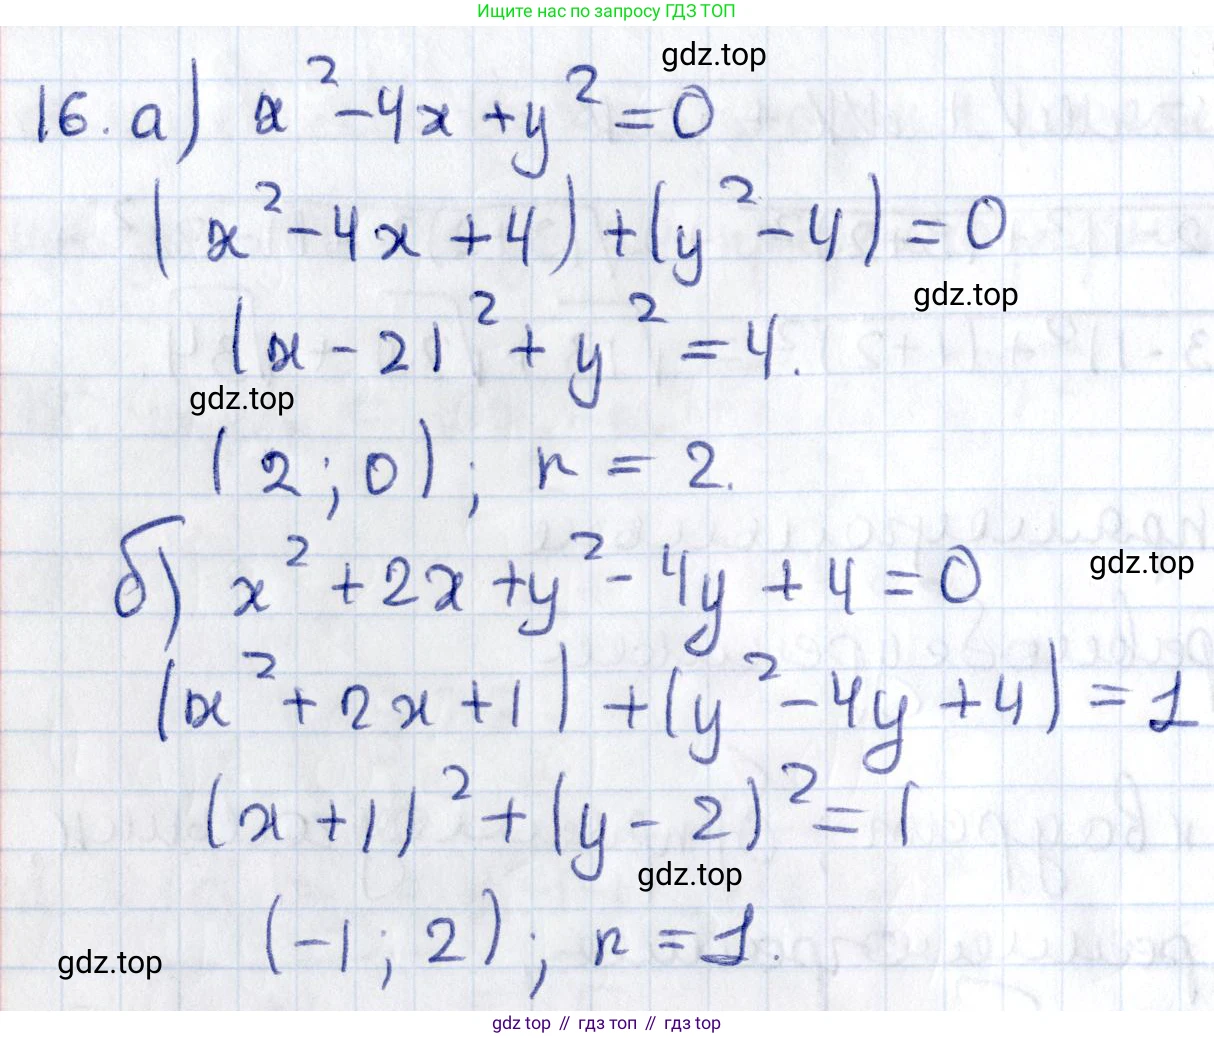 Ищите нас по запросу ГДЗ ТОП
gdz.top
16. а) x² - 4x + y² = 0
(x² - 4x + 4) + (y² - 4) = 0
gdz.top
(x - 2)² + y² = 4.
gdz.top
(2; 0); r = 2.
б) x² + 2x + y² - 4y + 4 = 0
gdz.top
(x² + 2x + 1) + (y² - 4y + 4) = 1
(x + 1)² + (y - 2)² = 1
gdz.top
(-1; 2); r = 1.
gdz.top
gdz top // гдз топ // gdz top